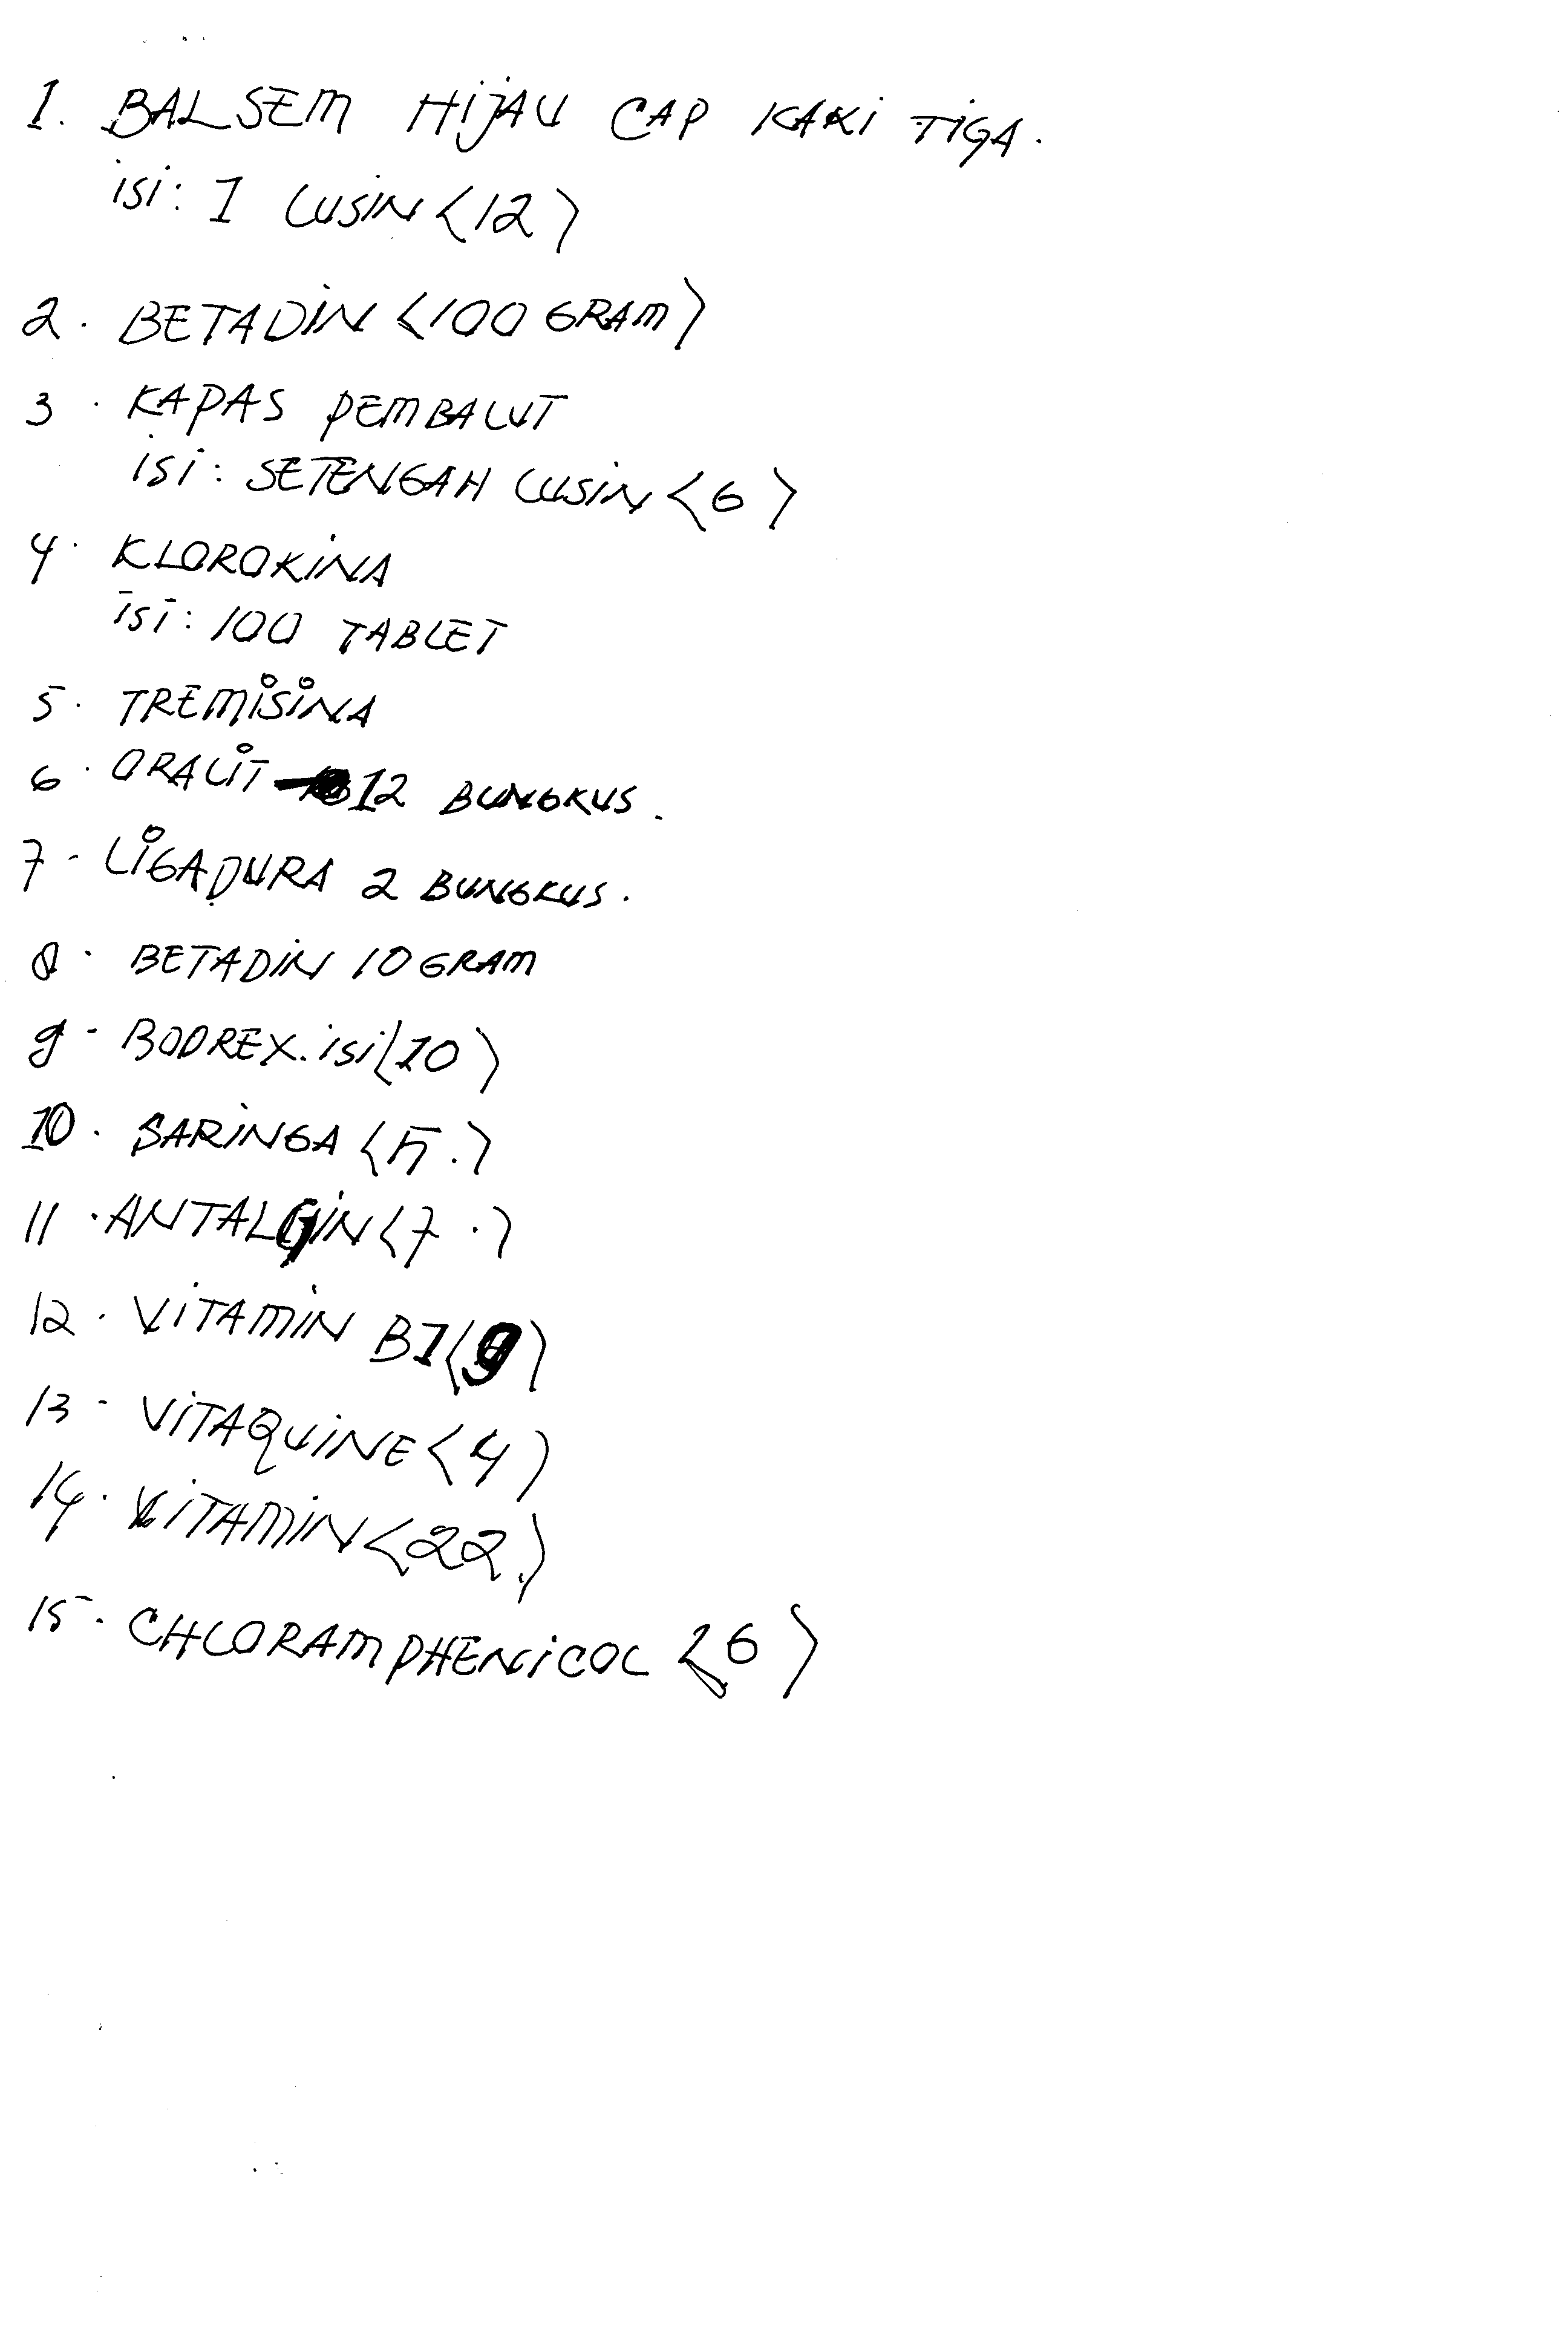 1. BALSEM HIJAU CAP KAKI TIGA.
isi: 1 LUSIN <12>
2. BETADIN <100 GRAM>
3. KAPAS PEMBALUT
isi: SETENGAH LUSIN <6>
4. KLOROKINA
isi: 100 TABLET
5. TREMISINA
6. ORALIT 12 BUNGKUS.
7. LIGADURA 2 BUNGKUS.
8. BETADIN 10 GRAM
9. BODREX. isi (10)
10. SARINGA <5.>
11. ANTALGIN <7.>
12. VITAMIN B1 (9)
13. VITAQUINE <4)
14. VITAMIN <22.)
15. CHLORAMPHENICOL <6>